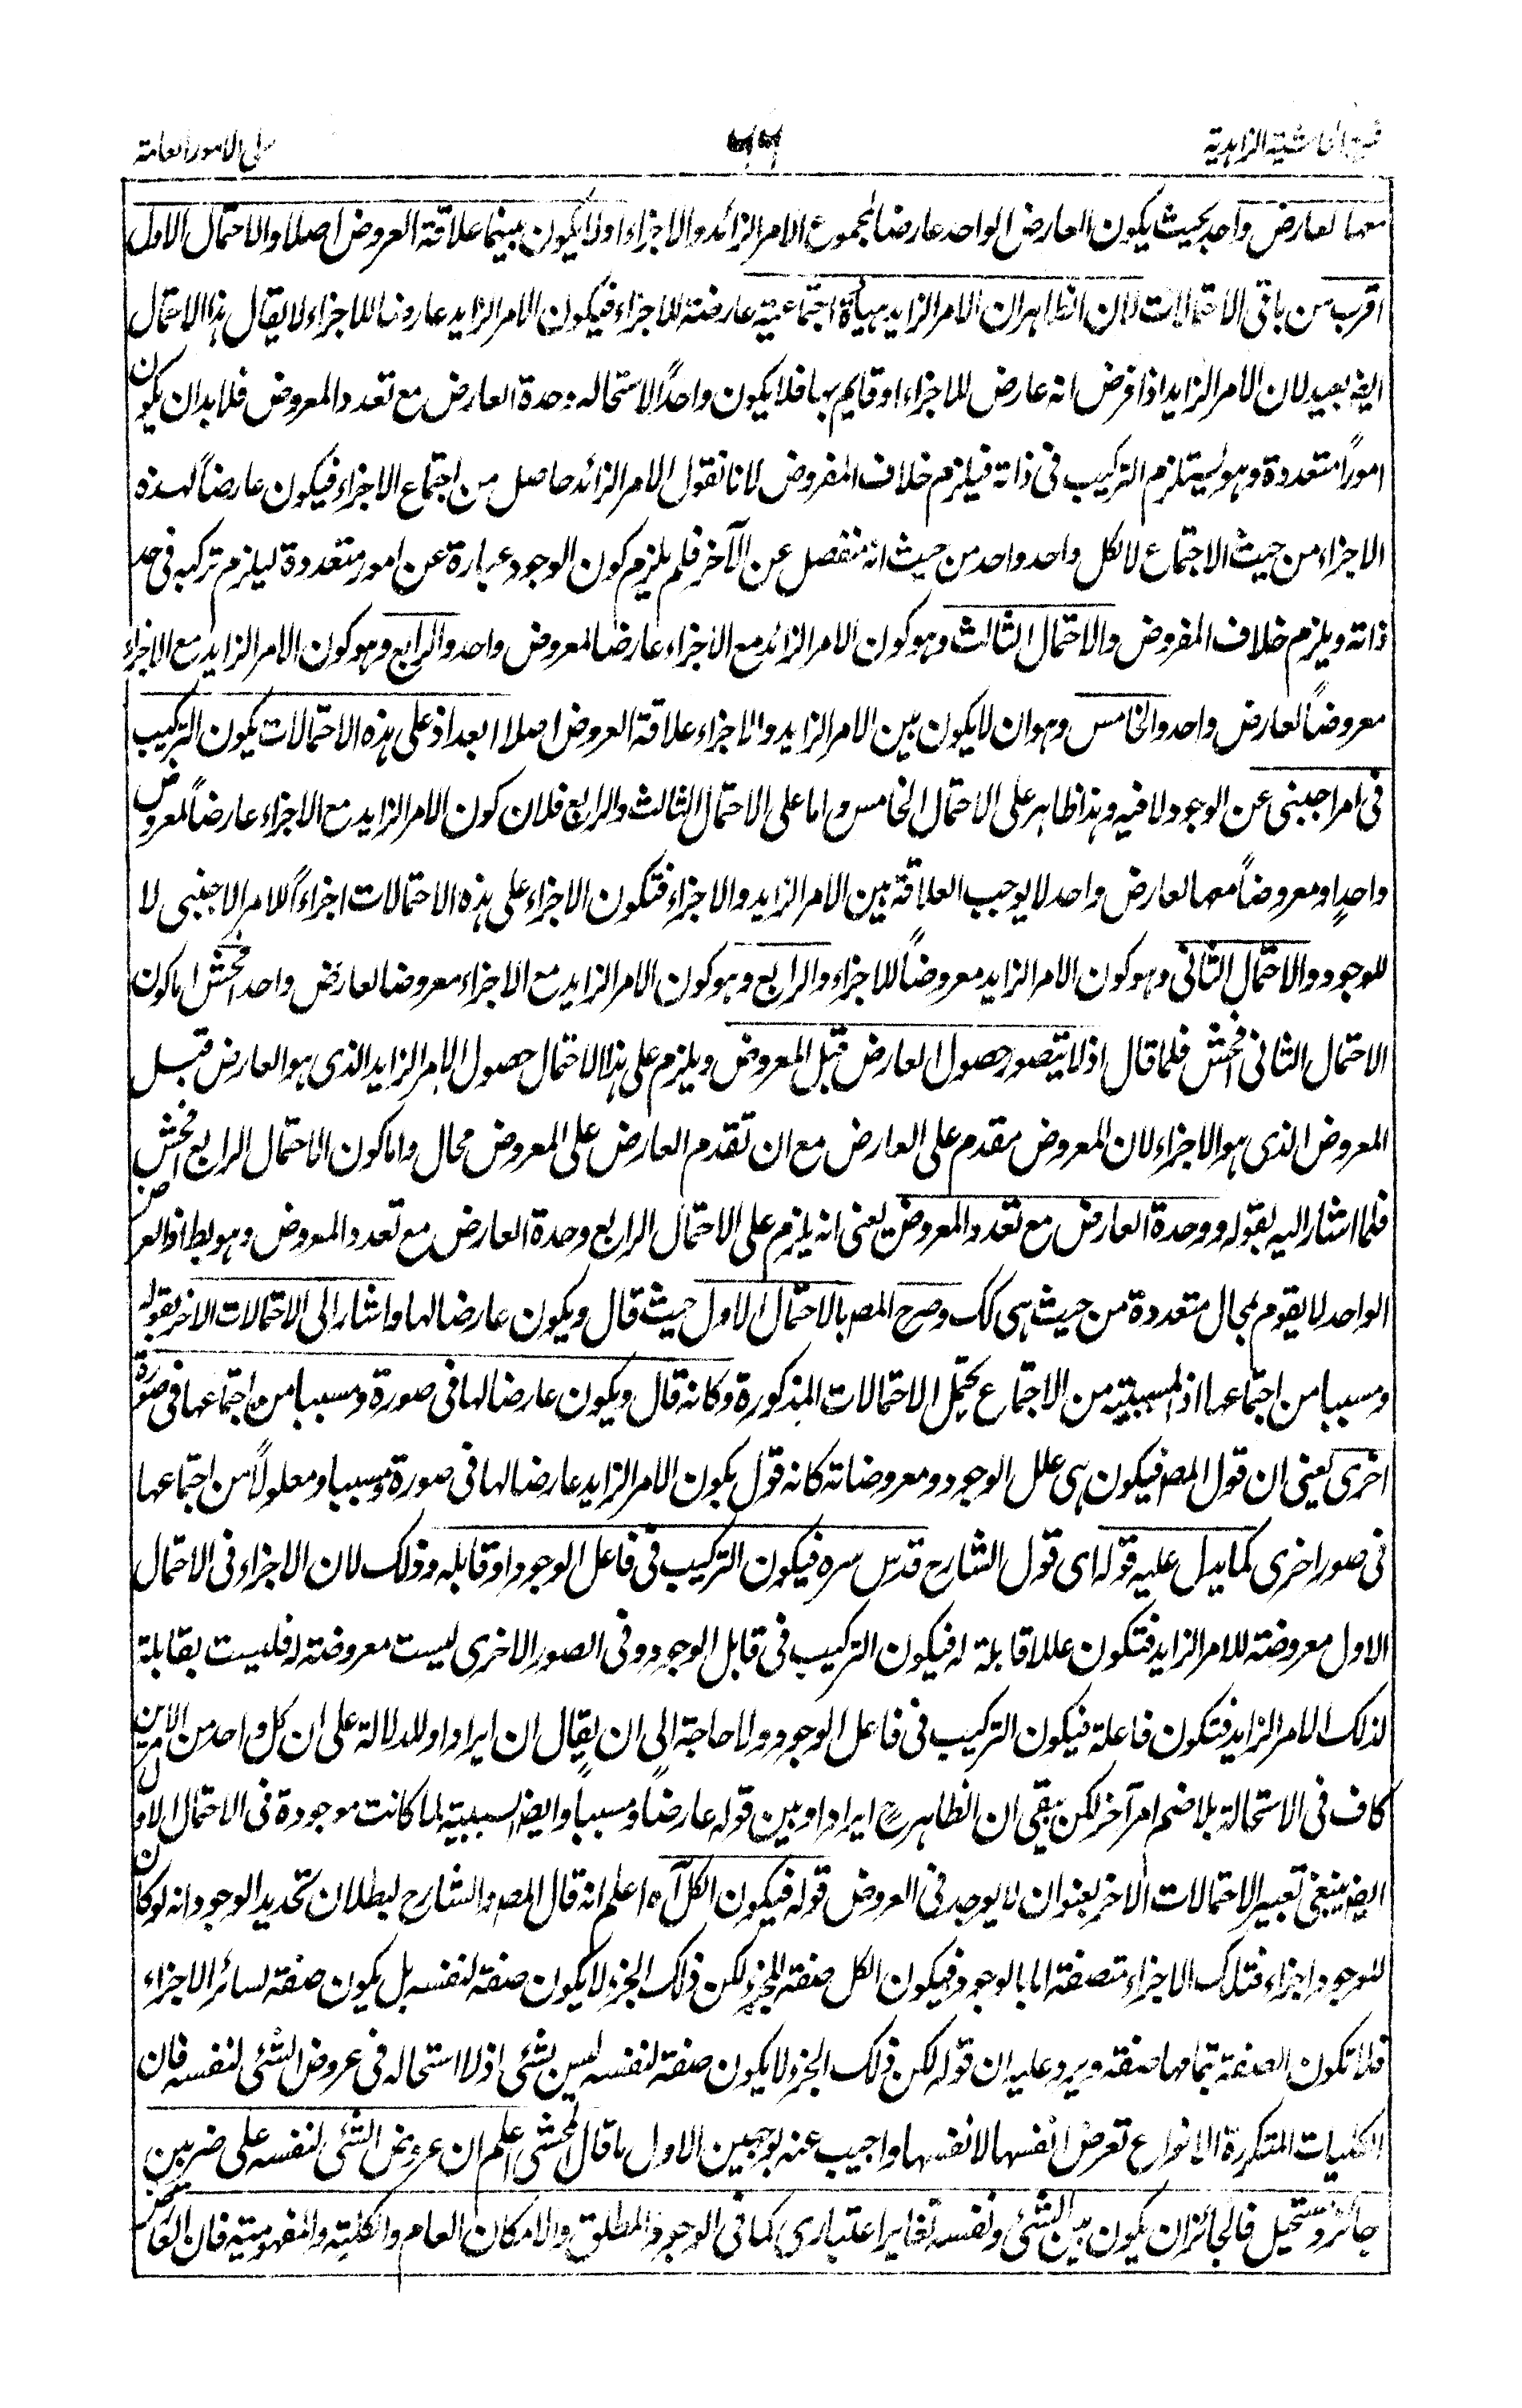 شرح الحاشية الزاهدية
على الامور العامة
معها لعارض واحد بحيث يكون العارض الواحد عارضا لمجموع الامر الزائد والاجزاء اولا يكون بينهما علاقة العروض اصلا والاحتمال الاول
اقرب من باقى الاحتمالات لان الظاهر ان الامر الزايد هيأة اجتماعية عارضة للاجزاء فيكون الامر الزايد عارضا للاجزاء لا يقال هذا الاحتمال
ايضا بعيد لان الامر الزايد اذا فرض انه عارض للاجزاء او قايم بها فلا يكون واحداً لاستحاله وحدة العارض مع تعدد المعروض فلا بد ان يكون
اموراً متعددة وهو يستلزم التركيب فى ذاته فيلزم خلاف المفروض لانا نقول الامر الزائد حاصل من اجتماع الاجزاء فيكون عارضاً لهذه
الاجزاء من حيث الاجتماع لا لكل واحد واحد من حيث انه منفصل عن الآخر فلم يلزم كون الوجود عبارة عن امور متعددة ليلزم تركبه فى حد
ذاته ويلزم خلاف المفروض والاحتمال الثالث وهو كون الامر الزائد مع الاجزاء عارضا لمعروض واحد والرابع وهو كون الامر الزايد مع الاجزاء
معروضاً لعارض واحد والخامس وهو ان لا يكون بين الامر الزايد والاجزاء علاقة العروض اصلا ابعد اذ على هذه الاحتمالات يكون التركيب
فى امر اجنبى عن الوجود لا فيه وهذا ظاهر على الاحتمال الخامس واما على الاحتمال الثالث والرابع فلان كون الامر الزايد مع الاجزاء عارضاً لمعروض
واحدٍ او معروضاً معها لعارض واحد لا يوجب العلاقة بين الامر الزايد والاجزاء فتكون الاجزاء على هذه الاحتمالات اجزاءاً للامر الاجنبى لا
للوجود والاحتمال الثانى وهو كون الامر الزايد معروضاً للاجزاء والرابع وهو كون الامر الزايد مع الاجزاء معروضا لعارض واحد افحش اما كون
الاحتمال الثانى افحش فلما قال اذ لا يتصور حصول العارض قبل المعروض ويلزم على هذا الاحتمال حصول الامر الزايد الذى هو العارض قبل
المعروض الذى هو الاجزاء لان المعروض مقدم على العارض مع ان تقدم العارض على المعروض محال واما كون الاحتمال الرابع افحش
فلما اشار اليه بقوله ووحدة العارض مع تعدد المعروض يعنى انه يلزم على الاحتمال الرابع وحدة العارض مع تعدد المعروض وهو بط اذ العرض
الواحد لا يقوم بمحال متعددة من حيث هى كك وصرح المصـ بالاحتمال الاول حيث قال ويكون عارضا لها واشار الى الاحتمالات الاخر بقوله
ومسببا من اجتماعها اذ المسببية من الاجتماع يحتمل الاحتمالات المذكورة وكانه قال ويكون عارضا لها فى صورة ومسببا من اجتماعها فى صورة
اخرى يعنى ان قول المصـ فيكون هى علل الوجود ومعروضاته كانه قول يكون الامر الزايد عارضا لها فى صورة ومسببا ومعلولاً من اجتماعها
فى صور اخرى كما يدل عليه قوله اى قول الشارح قدس سره فيكون التركيب فى فاعل الوجود او قابله وذلك لان الاجزاء فى الاحتمال
الاول معروضة للامر الزايد فتكون عللا قابلة له فيكون التركيب فى قابل الوجود وفى الصور الاخرى ليست معروضة له فليست بقابلة
لذلك الامر الزايد فتكون فاعلة فيكون التركيب فى فاعل الوجود ولا حاجة الى ان يقال ان ايراد او للدلالة على ان كل واحد من الامرين
كاف فى الاستحالة بلا ضم امر آخر لكن بقى ان الظاهر ح ايراد او بين قوله عارضاً ومسبباً وايضا السببية لما كانت موجودة فى الاحتمال الاول
ايضا ينبغى تعبير الاحتمالات الاخر بعنوان لا يوجد فى العروض قوله فيكون الكل آه اعلم انه قال المصـ والشارح لبطلان تحديد الوجود انه لو كان
للوجود اجزاء فتلك الاجزاء متصفة اما بالوجود فيكون الكل صفة للجزء لكن ذلك الجزء لا يكون صفة لنفسه بل يكون صفة لسائر الاجزاء
فلا تكون الصفة بتمامها صفة ويرد عليه ان قوله لكن ذلك الجزء لا يكون صفة لنفسه ليس بشئى اذ لا استحاله فى عروض الشئى لنفسه فان
الكليات المتكررة الانواع تعرض انفسها لانفسها واجيب عنه بوجهين الاول ما قال المحشى اعلم ان عروض الشئى لنفسه على ضربين
جائز ومستحيل فالجائز ان يكون بين الشئى ونفسه تغاير اعتبارى كما فى الوجود المطلق والامكان العام والكلية والمفهومية فان العارض